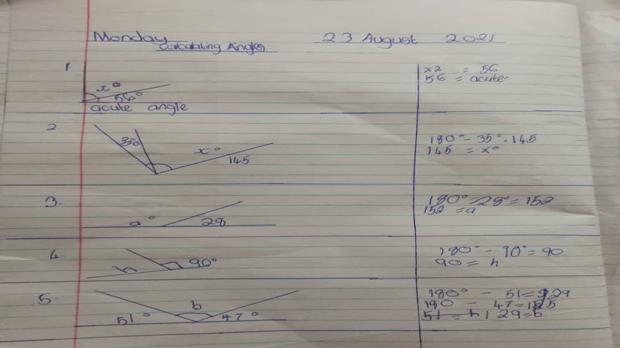 Monday 23 August 2021
Calculating Angles
1.
x°
56°
acute angle
x2 = 56
56 = acute
2
35°
x°
145
180° - 35° = 145
145 = x°
3.
a°
28
180° - 28° = 152
152 = a
4.
h
90°
180° - 90° = 90
90 = h
5.
b
51°
47°
180° - 51 = 129
180 - 47 =
51 = h 129 = b